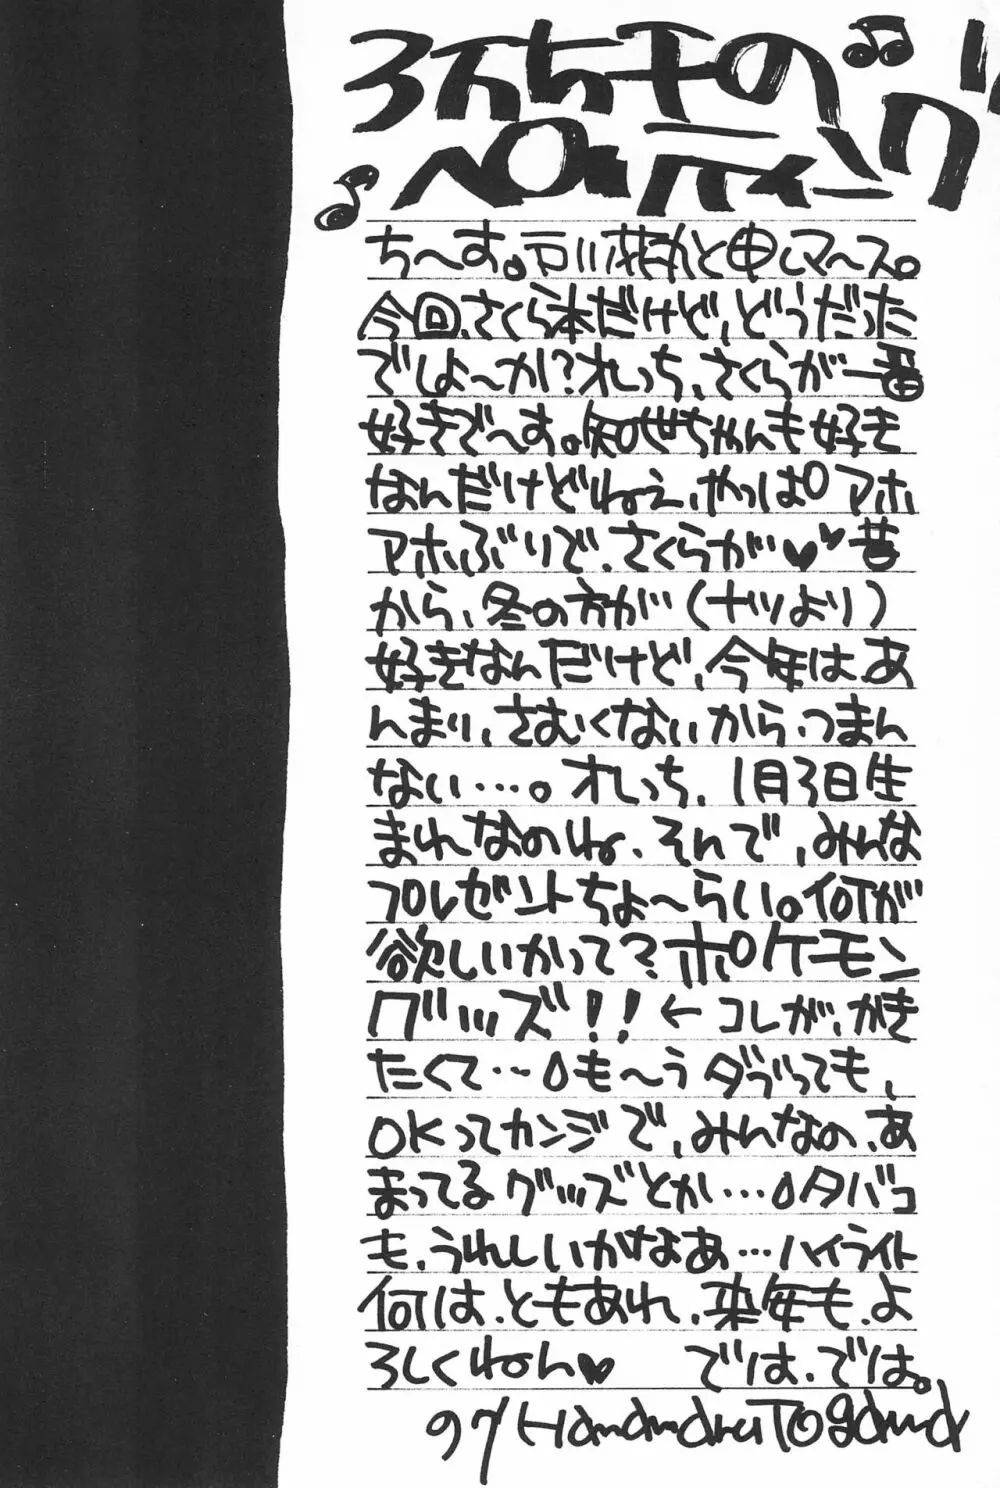 ち〜す。戸川花丸と申しマ〜ス。
今回、さくら本だけど、どうだった
でしょ〜か?オレっち、さくらが一番
好きで〜す。知世ちゃんも好き
なんだけどねえ、やっぱ。アホ
アホぶりで、さくらが♥♥昔
から、冬の方が(ナツより)
好きなんだけど、今年は、あ
んまり、さむくないから、つまん
ない…。オレっち、1月3日生
まれなのね、そんで、みんな
プレゼントちょ〜らい。何が
欲しいかって?ポケモン
グッズ!!←コレが、かき
たくて…。も〜う ダブっても、
OKってカンジで、みんなの、あ
まってるグッズとか…。タバコ
も、うれしいがなあ…ハイライト
何は、ともあれ、来年も、よ
ろしくねん♥ では、では。